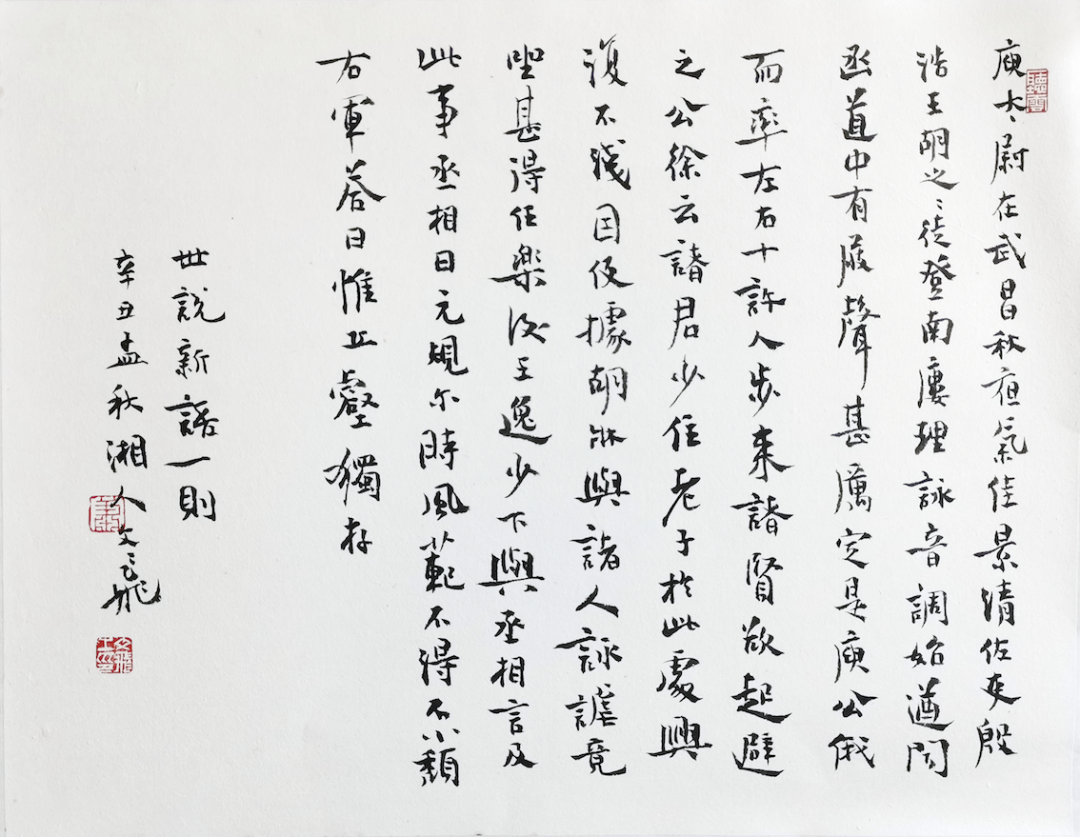 庾太尉在武昌秋夜氣佳景清佐吏殷
浩王胡之之徒登南廔理詠音調始遒聞
函道中有屐聲甚厲定是庾公俄
而率左右十許人步来諸賢欲起避
之公徐云諸君少住老子於此處興
復不淺因便據胡牀與諸人詠謔竟
坐甚得任樂後王逸少下與丞相言及
此事丞相曰元規尔時風範不得不小頹
右軍荅曰惟丘壑獨存
世說新語一則
辛丑孟秋湘人文飛
聽雲